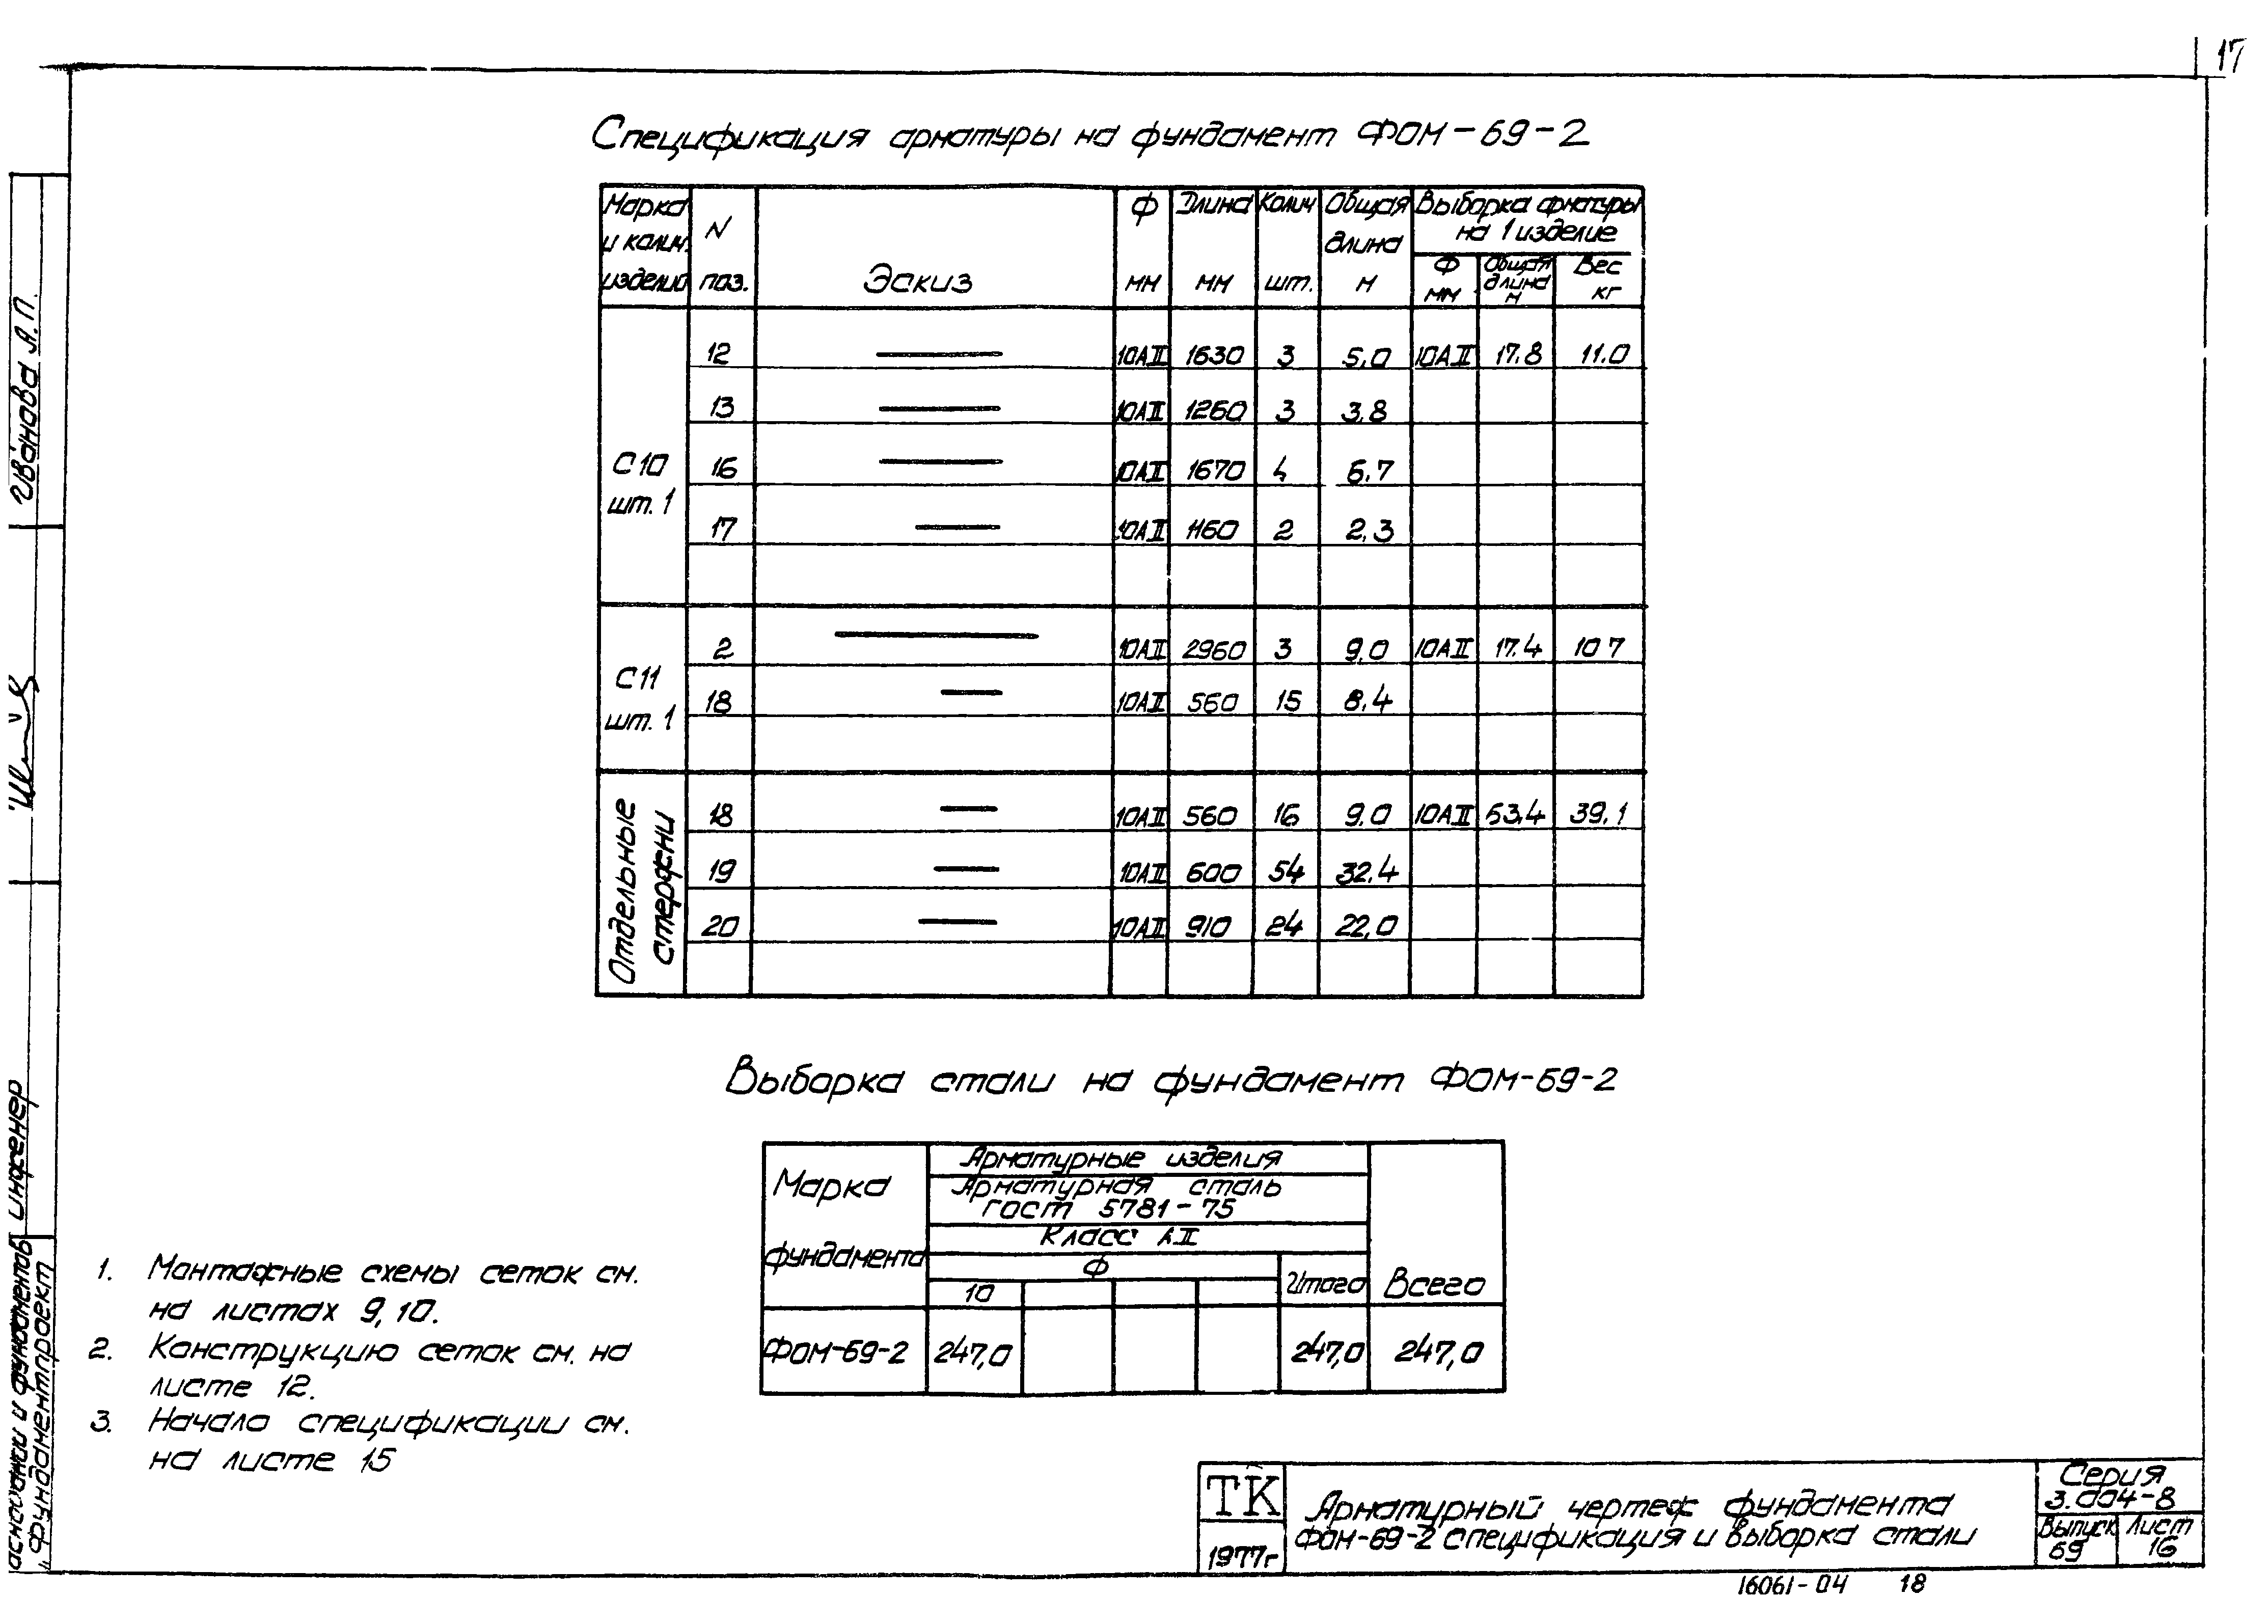 17
Спецификация арматуры на фундамент ФОМ-69-2
Марка и колич. изделий | N поз. | Эскиз | Ф мм | Длина мм | Колич шт. | Общая длина м | Выборка арматуры на 1 изделие
Ф мм | Общая длина м | Вес кг
С10 шт. 1
12 10АII 1630 3 5,0 10АII 17.8 11.0
13 10АII 1260 3 3,8
16 10АII 1670 4 6,7
17 10АII 1160 2 2,3
С11 шт. 1
2 10АII 2960 3 9,0 10АII 17.4 10 7
18 10АII 560 15 8,4
Отдельные стержни
18 10АII 560 16 9,0 10АII 63,4 39,1
19 10АII 600 54 32,4
20 10АII 910 24 22,0
Выборка стали на фундамент ФОМ-69-2
Марка фундамента
Арматурные изделия
Арматурная сталь
ГОСТ 5781-75
Класс АII
Ф
10 Итого Всего
ФОМ-69-2 247,0 247,0 247,0
1. Монтажные схемы сеток см.
на листах 9, 10.
2. Конструкцию сеток см. на
листе 12.
3. Начало спецификации см.
на листе 15
ТК
1977г
Арматурный чертеж фундамента
ФОМ-69-2 спецификация и выборка стали
Серия
3.004-8
Выпуск 69
Лист 16
16061-04 18
Иванова А.П.
инженер
оснований и фундаментов
„Фундаментпроект